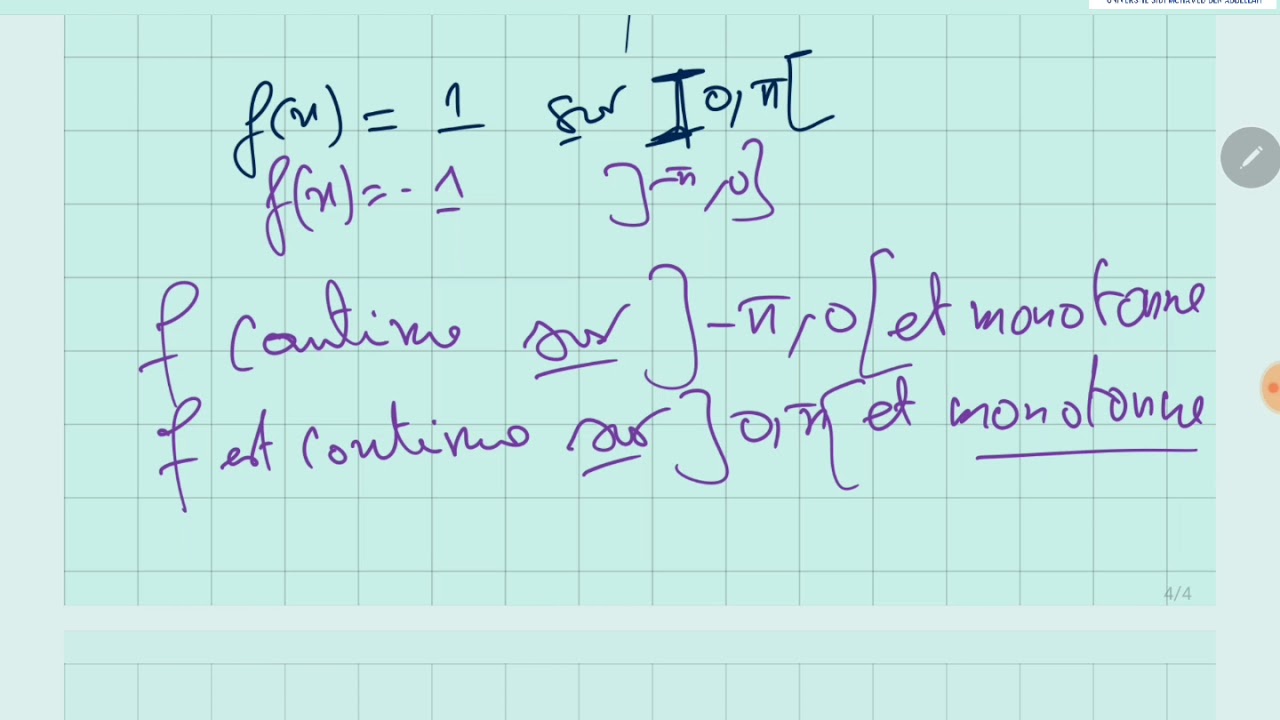 UNIVERSITE SIDI MOHAMED BEN ABDELLAH
f(x) = 1 sur ]0, π[
f(x) = -1 ]-π, 0[
f continue sur ]-π, 0[ et monotonne
f est continue sur ]0, π[ et monotonne
4/4